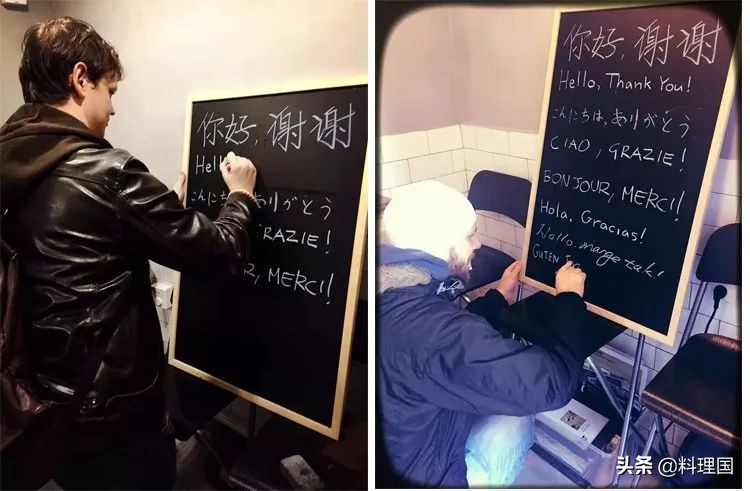 你好,谢谢
Hell
こんに ありがとう
RAZIE!
R, MERCI!
你好,谢谢
Hello, Thank You!
こんにちは,ありがとう
CIAO, GRAZIE!
BONJOUR, MERCI!
Hola, Gracias!
Hallo, mange tak!
GUTEN T
头条 @料理国